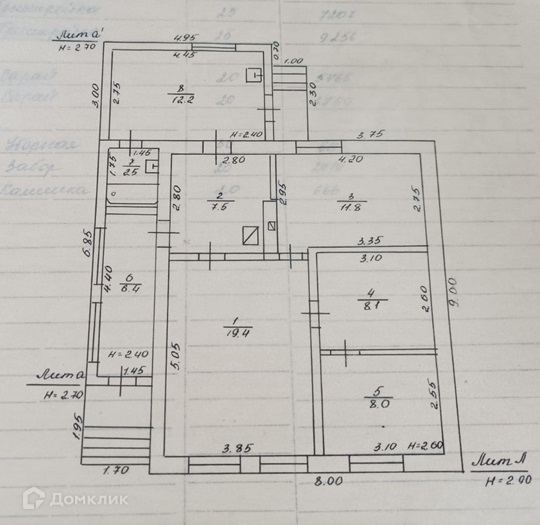 25
7202
25
9256
Сарай
20
Сарай
20
Уборная
Забор
20
Калитка
Лит а'
H=2.70
4.95
4.45
0.70
1.00
3.00
2.75
8
12.2
2.30
H=2.40
3.75
1.45
2.80
4.20
1.75
7
2.5
2.80
2
7.5
2.95
3
11.8
2.75
6.85
3.35
3.10
4.40
6
6.4
4
8.1
2.60
9.00
1
19.4
H=2.40
5.05
1.45
Лит а
H=2.70
5
8.0
2.55
1.95
3.85
3.10
H=2.60
1.70
8.00
Лит А
H=2.90
Домклик